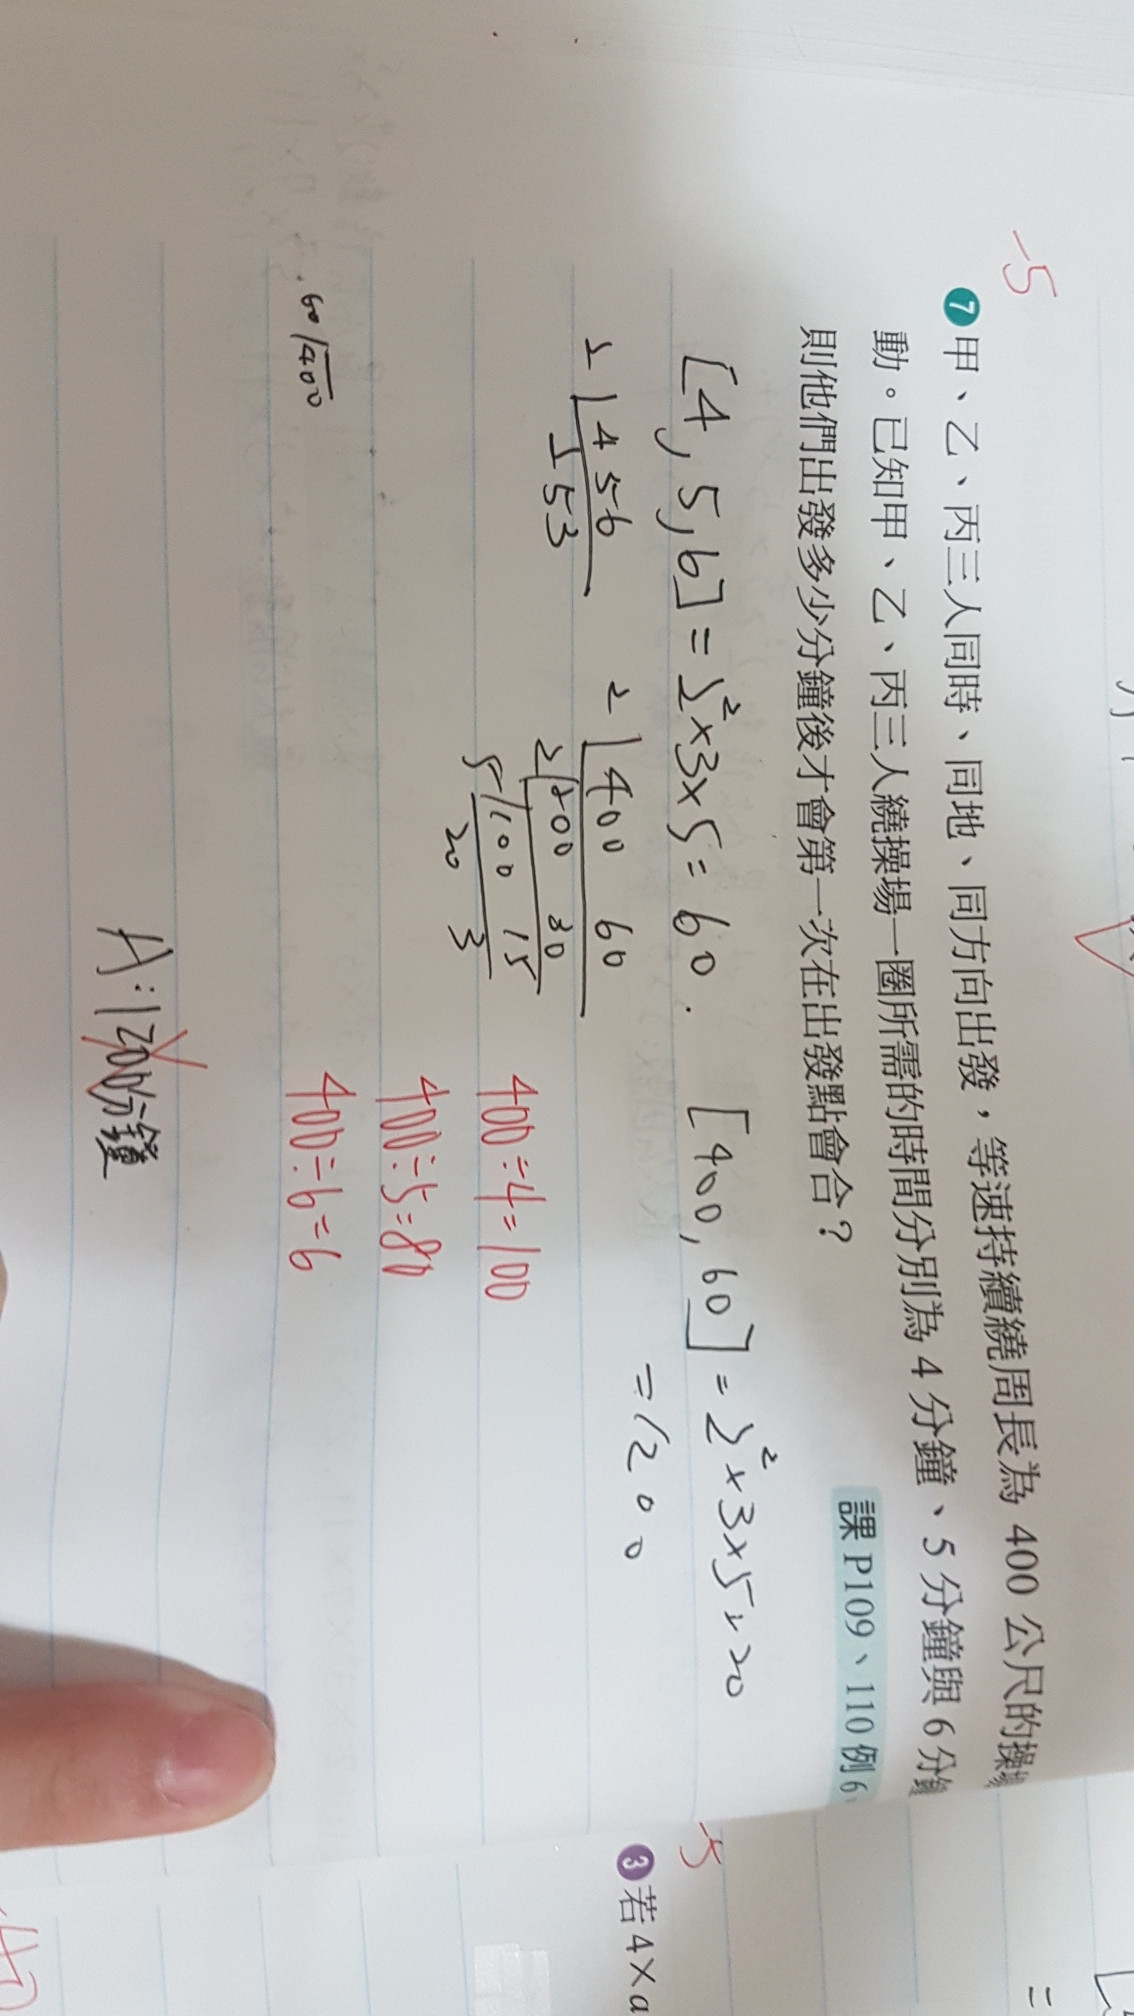 -5
7 甲、乙、丙三人同時、同地、同方向出發，等速持續繞周長為 400 公尺的操
動。已知甲、乙、丙三人繞操場一圈所需的時間分別為 4 分鐘、5 分鐘與 6 分
則他們出發多少分鐘後才會第一次在出發點會合？
課 P109、110 例 6
[4, 5, 6] = 2²×3×5 = 60.
[400, 60] = 2²×3×5×20
= 1200
2 4 5 6
2 5 3
2 400 60
2 200 30
5 100 15
20 3
400÷4=100
400÷5=80
400÷6=6
60 400
A:1200分鐘
-5
3 若 4×a
=